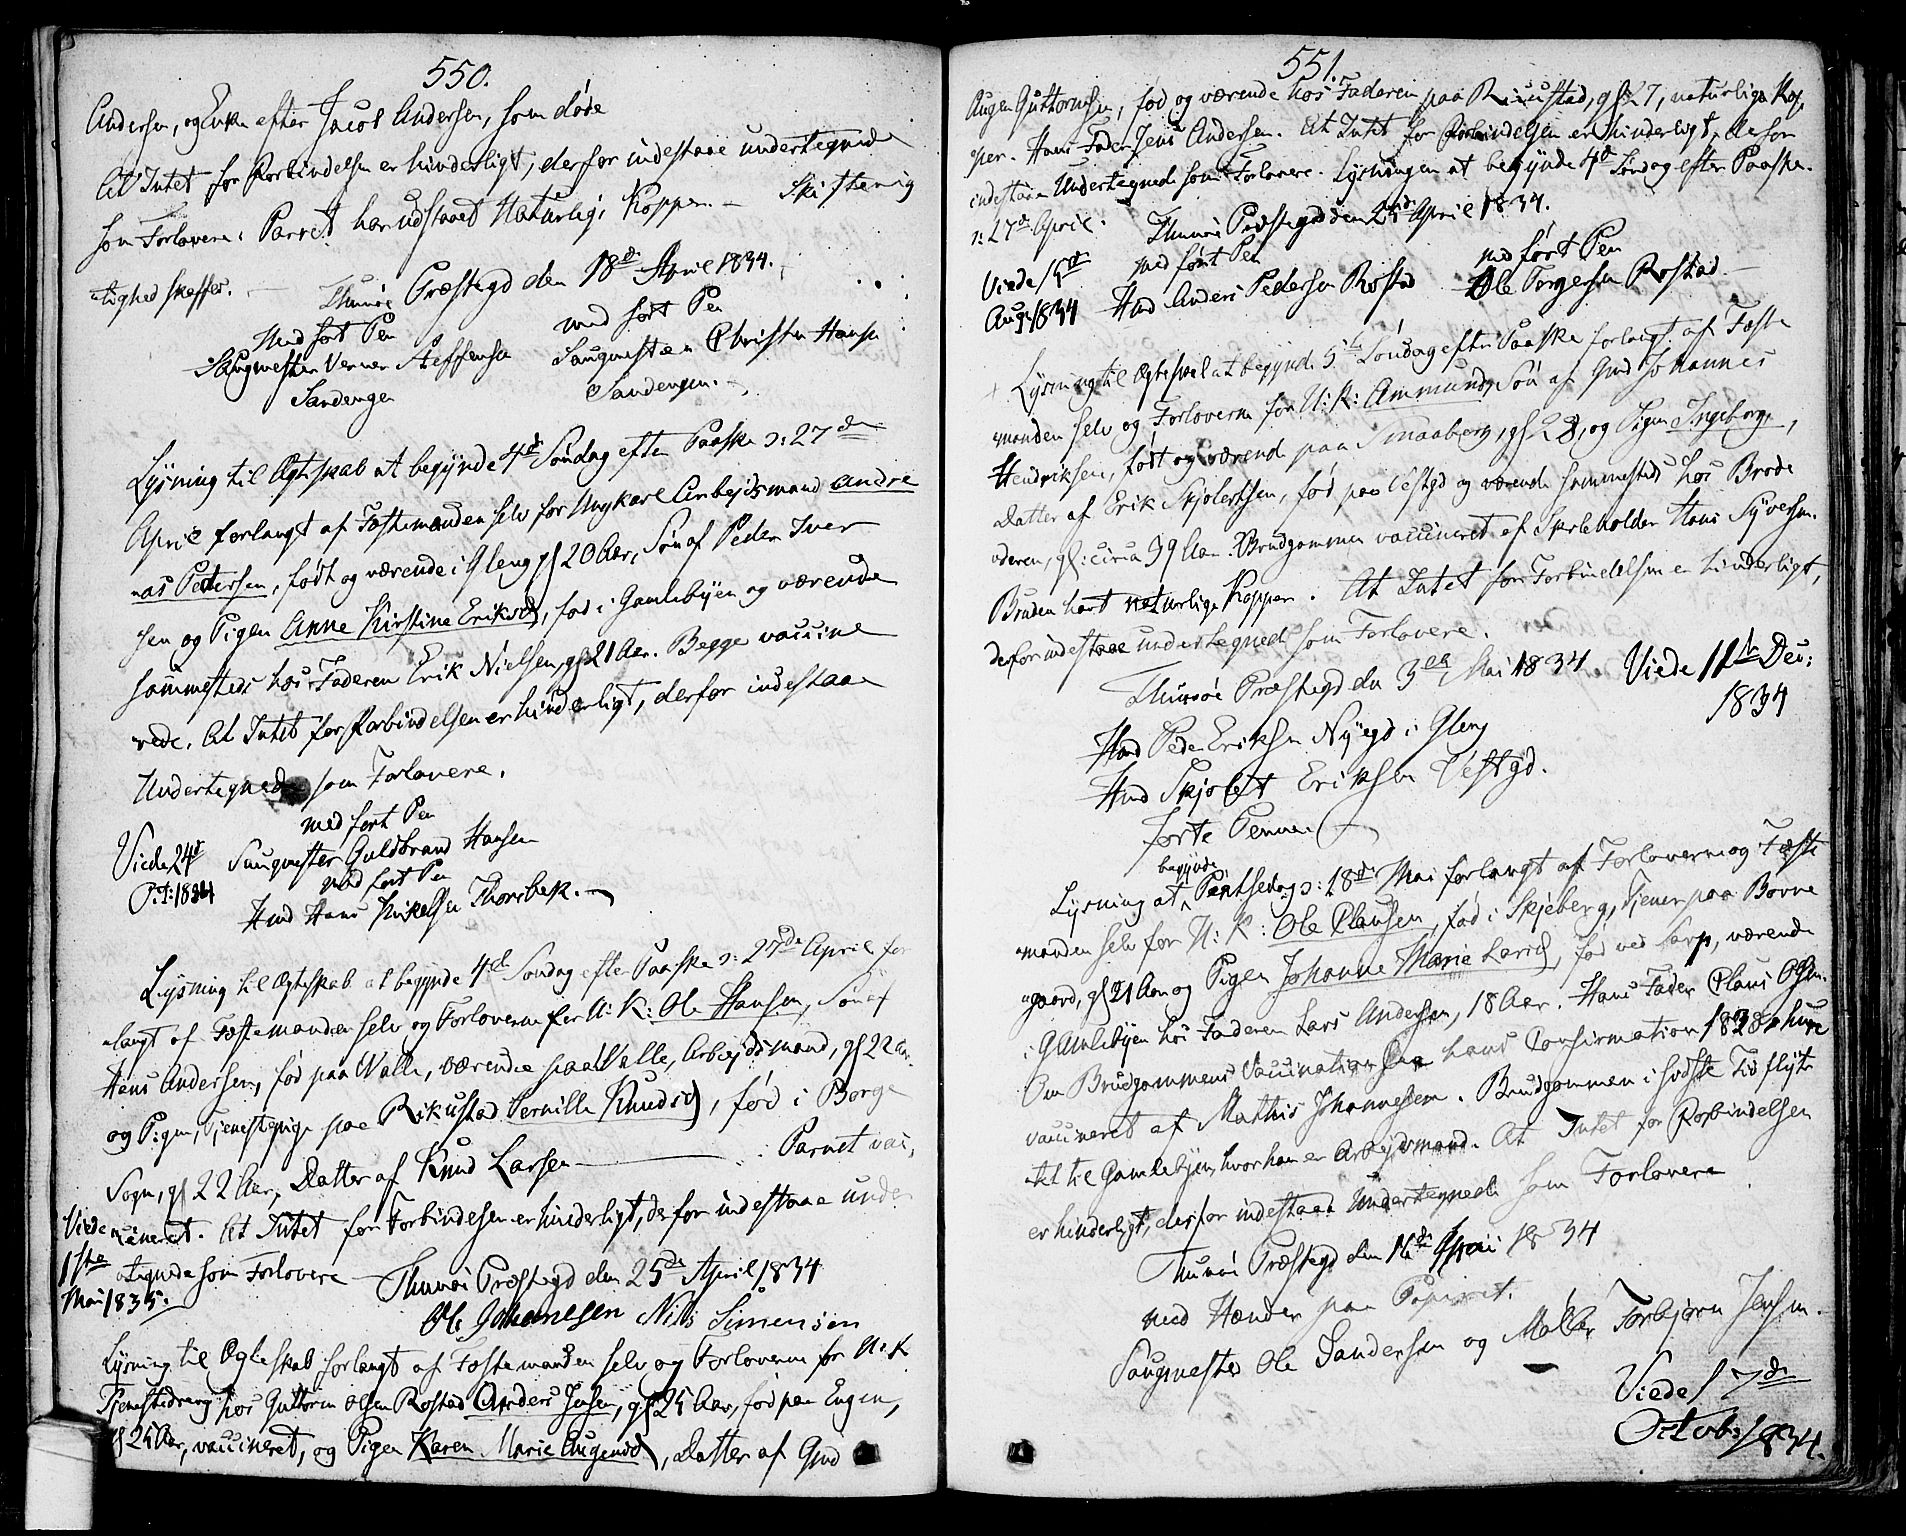 550.
Andersen, og Enke efter Jacob Andersen, som døde
At Intet for Forbindelsen er hinderligt, derfor indestaae undertegnede
som Forlovere. Parret har udstaaet Naturlige Kopper. — Skifterig
tighed skaffes. — Thunøe Præstegd den 18de April 1834.
Med ført Pen med ført Pen
Saugmester Verner Steffensen Saugmester Christen Hansen
Sandengen Sandengen.
Lysning til Ægteskab at begynde 4de Søndag efter Paaske ɔ: 27de
April forlangt af Fæstemanden selv for Ungkarl Arbejdsmand Andre
nas Pedersen, født og værende i Gleng gl 20 Aar, Søn af Peder Iver
sen og Pigen Anne Kirstine Eriksd, fød i Gamlebyen og værende
sammesteds hos Faderen Erik Nielsen, gl 21 Aar. Begge vaccine
rede. At Intet for Forbindelsen er hinderligt, derfor indestaae
Undertegnede som Forlovere.
med ført Pen
Viede 24de Saugmester Guldbrand Hansen
Oct: 1834 med ført Pen
Hmd Hans Mikelsen Thorsbek. —
Lysning til Ægteskab at begynde 4de Søndag efter Paaske ɔ: 27de April for
langt af Fæstemanden selv og Forloverne for U: K: Ole Hansen, Søn af
Hans Andersen, fød paa Valle, værende paa Valle, Arbejdsmand, gl 22 Aar
og Pigen, Tjenestepige paa Rikustad Pernille Knudsd, fød i Borge
Sogn, gl 22 Aar, Datter af Knud Larsen — Parret vac,
Viede cineret. At Intet for Forbindelsen er hinderligt, derfor indestaae under
1ste tegnede som Forlovere — Thunøe Præstegd den 25de April 1834
Mai 1835. Ole Johannesen Nils Simensen
Lysning til Ægteskab forlangt af Fæstemanden selv og Forloverne for U: K
Tjenestedreng hos Guttorm Olsen Rostad Anders Jensen, gl 25 Aar, fød paa Eugen,
gl 25 Aar, vaccineret, og Pigen Karen Marie Augensd, Datter af Gmd
551.
Augen Guttormsen, fød og værende hos Faderen paa Rikustad, gl 27, naturlige Kop,
per. Hans Fader Jens Andersen. At Intet for Forbindelsen er hinderligt, derfor
indestaae Undertegnede som Forlovere. Lysningen at begynde 4de Søndag efter Paaske.
ɔ: 27de April. Thunøe Præstegd den 25de April 1834.
Viede 15de med ført Pen med ført Pen
Aug: 1834 Hmd Anders Pedersen Rostad Ole Torgersen Rostad —
Lysning til Ægteskab at begynde 5te Søndag efter Paaske forlangt af Fæste
manden selv og Forloverne for U: K: Ammund, Søn af Gmd Johannes
Hendriksen, født og værende paa Smaaberg, gl 28, og Pigen Ingeborg,
Datter af Erik Skjolertsen, fød paa Vestgd og værende sammesteds hos Brode
deren, gl: circa 39 Aar. Brudgommen vaccineret af Skoleholder Hans Syversen.
Bruden havt naturlige Kopper. At Intet for Forbindelsen er hinderligt,
derfor indestaae undertegnede som Forlovere.
Thunøe Præstegd den 3die Mai 1834 Viede 11te Dec:
1834
Hmd Peder Eriksen Nygd i Gleng
Hmd Skjolet Eriksen Vestgd.
førte Pennen
begynde
Lysning at Pintsedag ɔ: 18de Mai forlangt af Forloverne og Fæste
manden selv for U: K: Ole Clausen, fød i Skjeberg, Tjener paa Borne
gaard, gl 21 Aar og Pigen Johanne Marie Larsd, fød ved Sarp, værende
i Gamlebyen hos Faderen Lars Andersen, 18 Aar. Hans Fader Claus Olsen.
Om Brudgommens Vaccination hans Confirmation 1828
vaccineret af Mathis Johannesen. Brudgommen i sidste Tid flyt
tet til Gamlebyen, hvor han er Arbejdsmand. At Intet for Forbindelsen
er hinderligt, derfor indestaae Undertegnede som Forlovere
Thunøe Præstegd den 16de Mai 1834
med Hænder paa Papiret.
Saugmester Ole Sandersen og Møller Torbjørn Jensen.
Viede 17de
Octob: 1834.